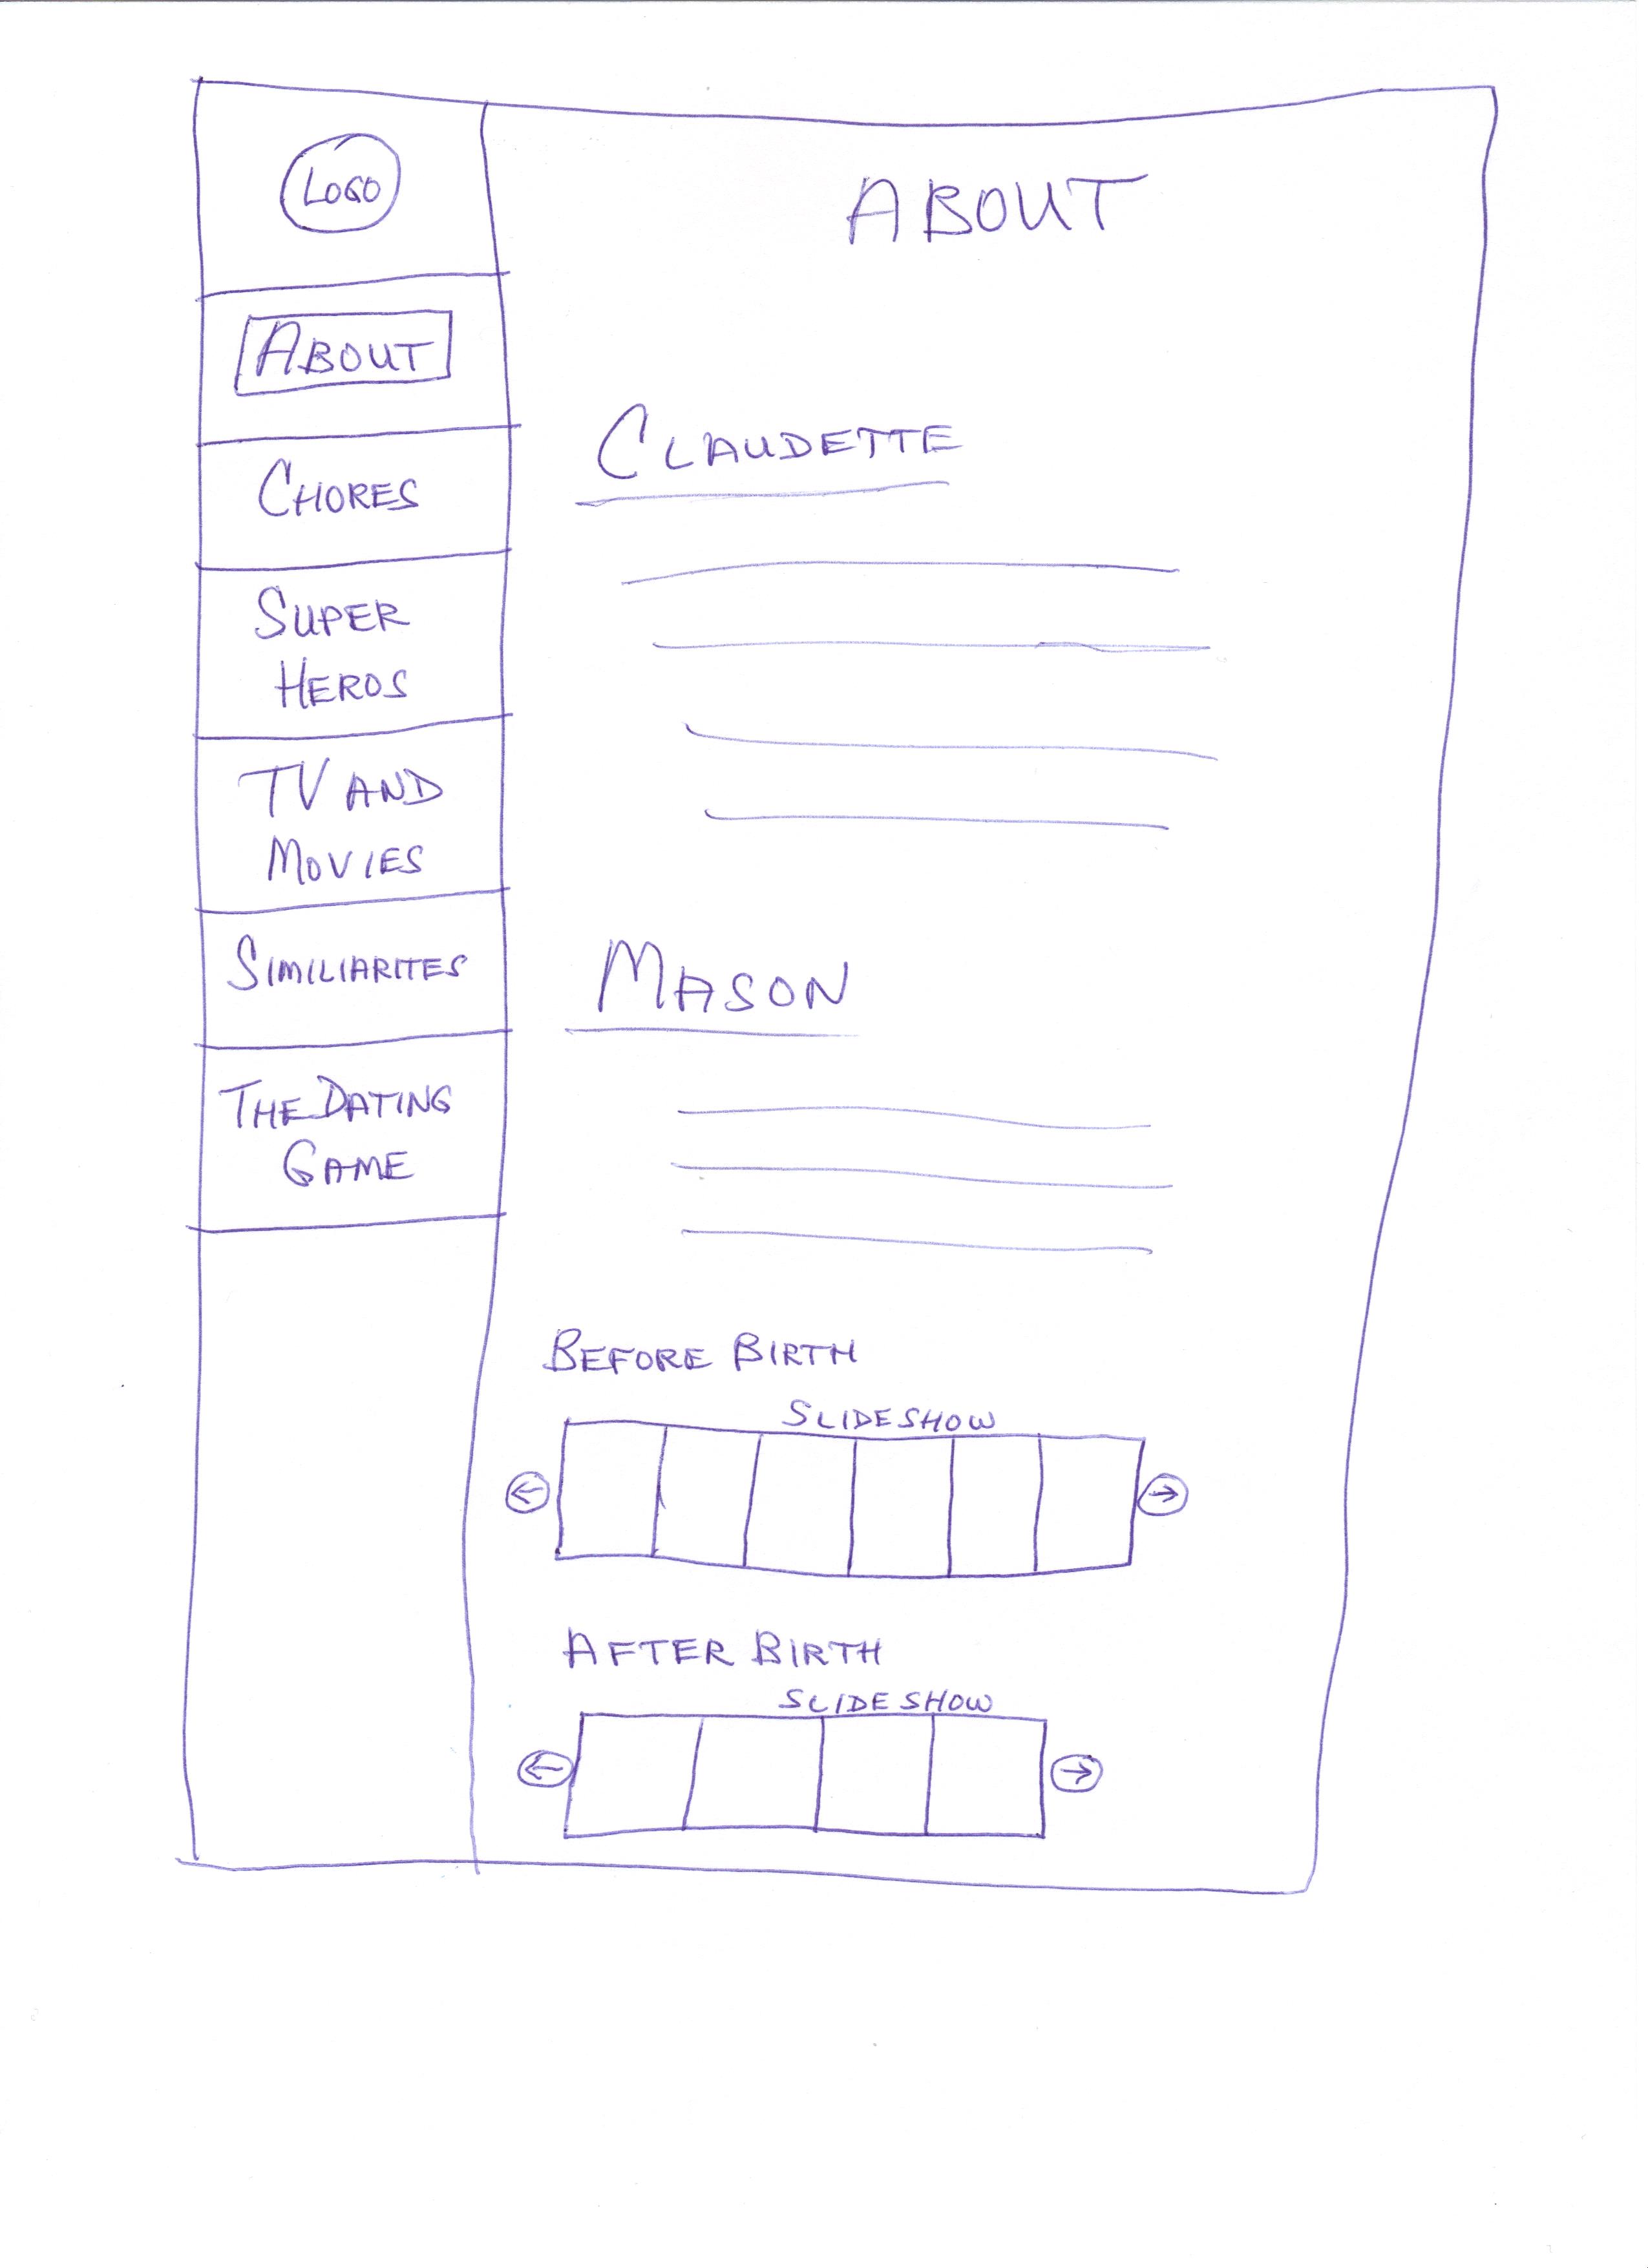 LOGO
ABOUT
ABOUT
CHORES
SUPER
HEROS
TV AND
MOVIES
SIMILIARITES
THE DATING
GAME
CLAUDETTE
MASON
BEFORE BIRTH
SLIDESHOW
AFTER BIRTH
SLIDESHOW